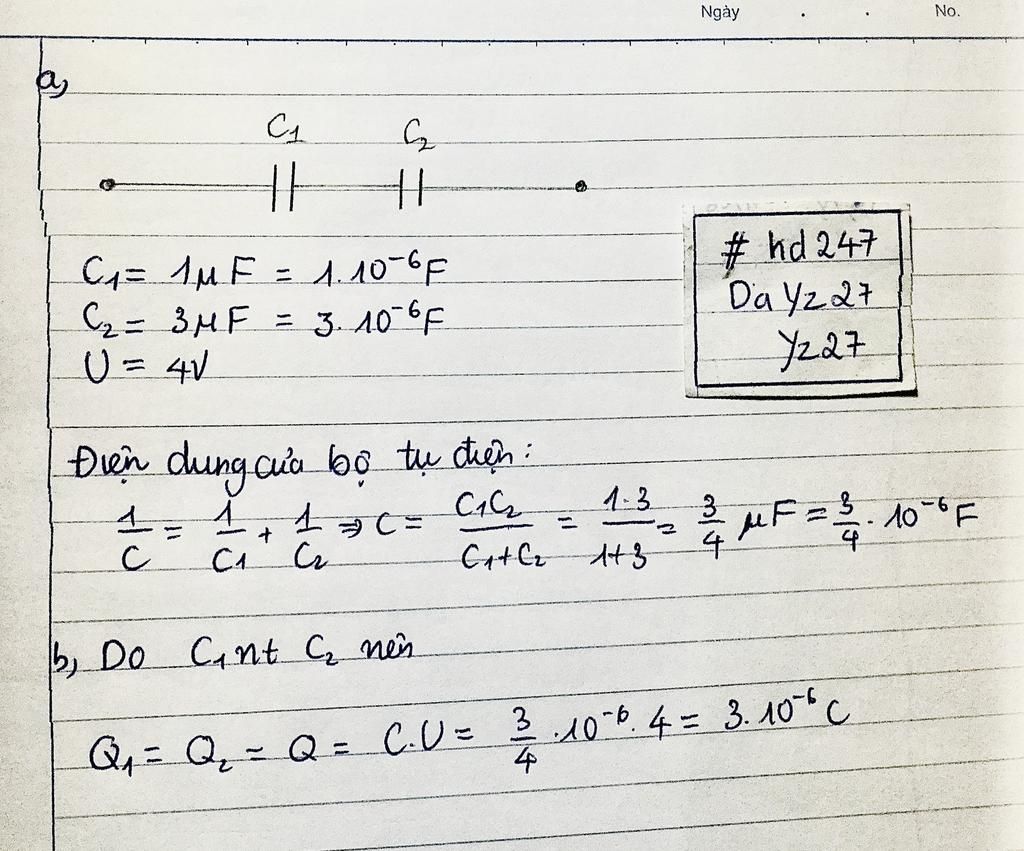 Ngày . . No.
a,
C₁ C₂
C₁ = 1μF = 1.10⁻⁶F
C₂ = 3μF = 3.10⁻⁶F
U = 4V
# hd247
DaYz27
Yz27
Điện dung của bộ tụ điện:
1/C = 1/C₁ + 1/C₂ ⇒ C = C₁C₂/C₁+C₂ = 1.3/1+3 = 3/4 μF = 3/4 . 10⁻⁶F
b, Do C₁ nt C₂ nên
Q₁ = Q₂ = Q = C.U = 3/4 .10⁻⁶. 4 = 3.10⁻⁶ C